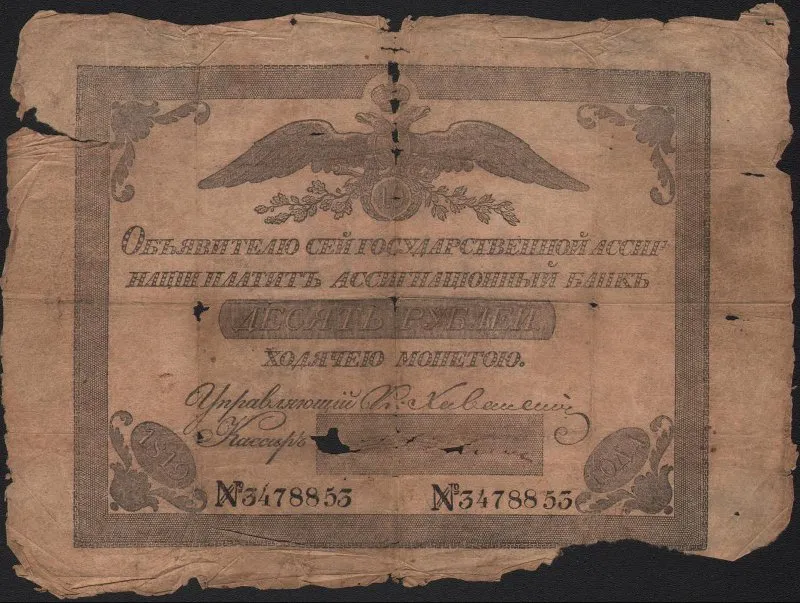 Объявителю сей государственной ассиг-
нации платитъ ассигнационный банкъ
ДЕСЯТЬ РУБЛЕЙ
ходячею монетою.
Управляющій
Кассиръ
1819 ГОДА
№3478853 №3478853